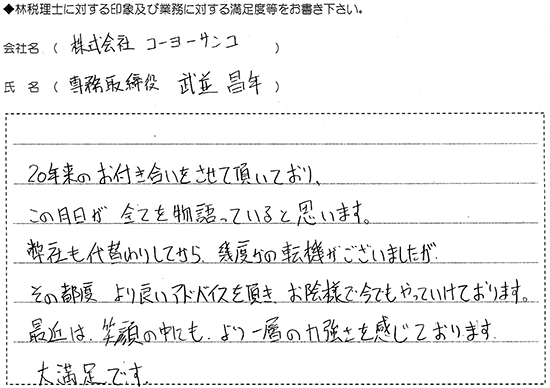 ◆林税理士に対する印象及び業務に対する満足度等をお書き下さい。
会社名（ 株式会社 コーヨーサンコ ）
氏 名（ 専務取締役 武並 昌年 ）
20年来のお付き合いをさせて頂いており、
この月日が 全てを物語っていると思います。
弊社も代替わりしてから、幾度かの転機がございましたが
その都度 より良いアドバイスを頂き、お陰様で今でもやっていけております。
最近は、笑顔の中にも、より一層の力強さを感じております。
大満足です。